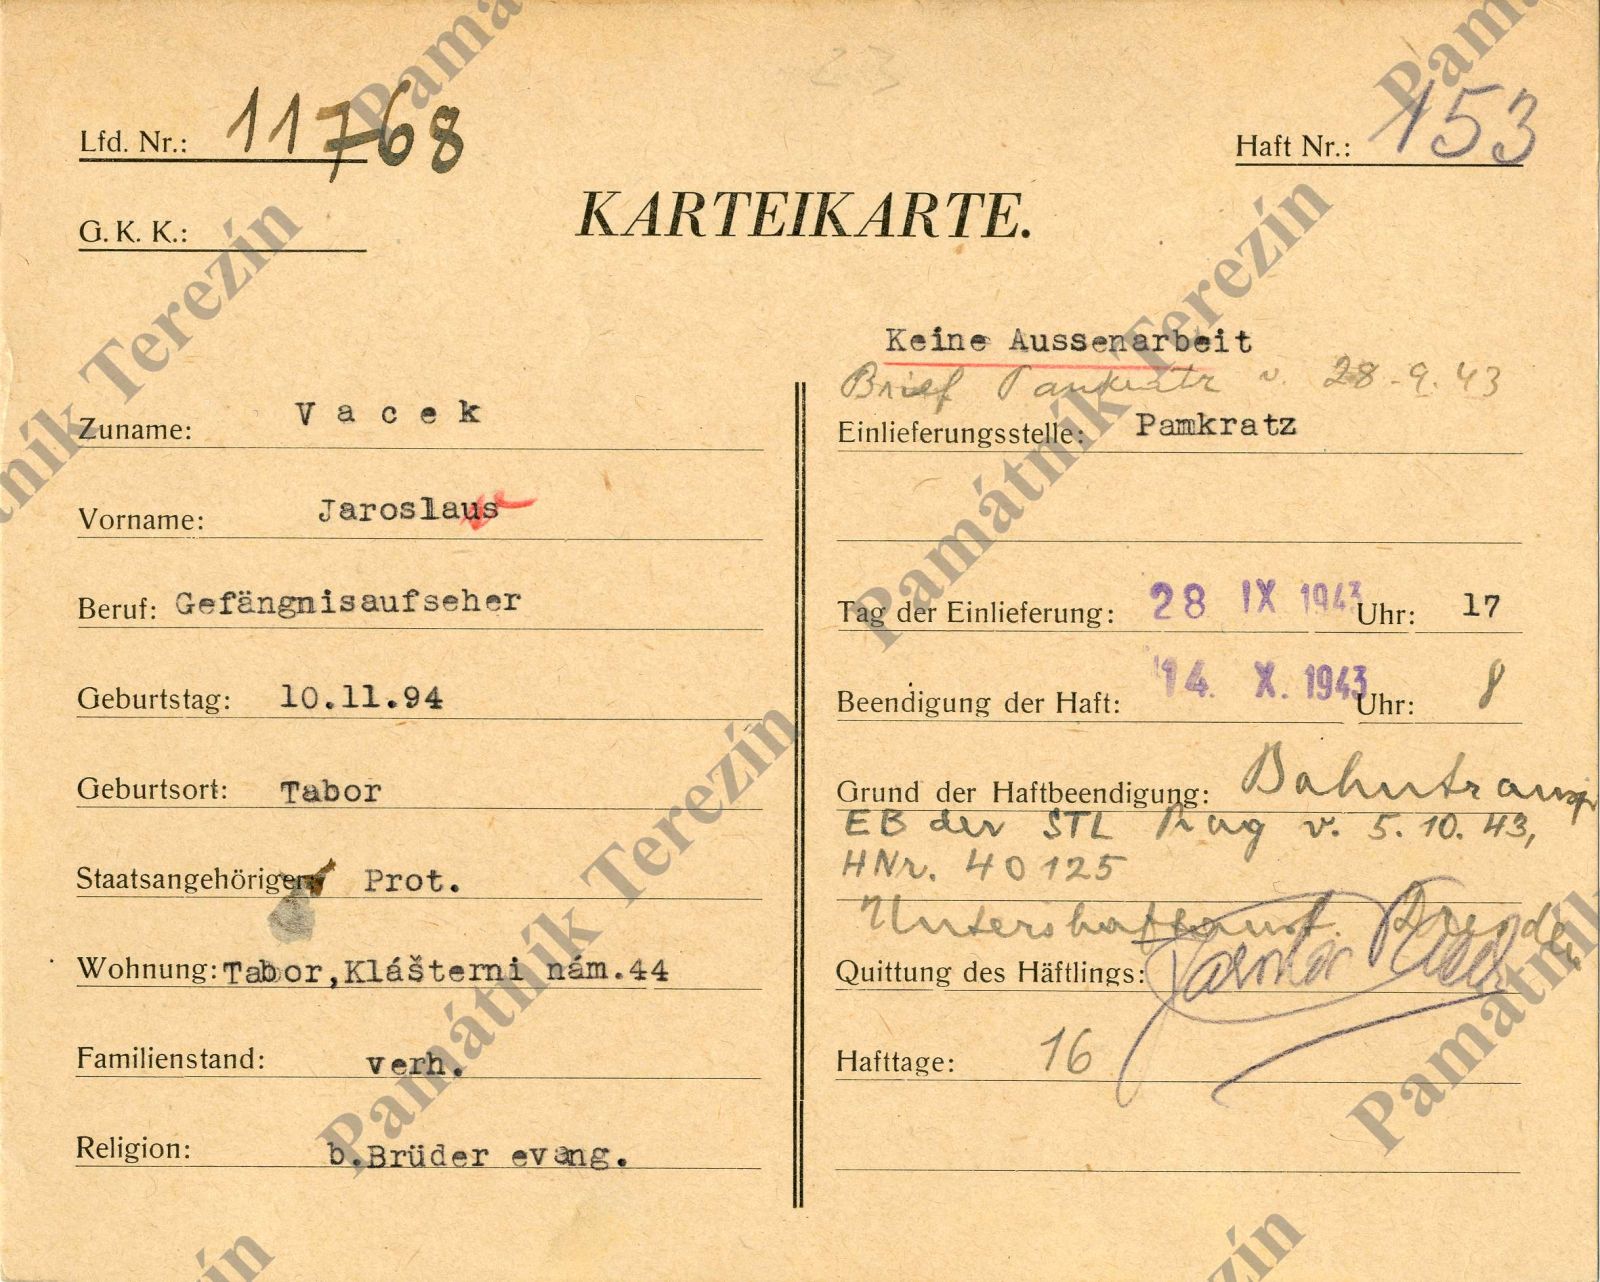 23
Lfd. Nr.: 11768
Haft Nr.: 153
G. K. K.:
KARTEIKARTE.
Keine Aussenarbeit
Brief Pankratz v. 28.9.43
Zuname: Vacek
Einlieferungsstelle: Pamkratz
Vorname: Jaroslaus
Beruf: Gefängnisaufseher
Tag der Einlieferung: 28 IX 1943 Uhr: 17
Geburtstag: 10.11.94
Beendigung der Haft: 14. X. 1943 Uhr: 8
Geburtsort: Tabor
Grund der Haftbeendigung: Bahntransp
EB der STL Prag v. 5.10.43,
HNr. 40125
Staatsangehörigen Prot.
Untershaftanst. Dresden
Wohnung: Tabor,Klášterni nám.44
Quittung des Häftlings:
Familienstand: verh.
Hafttage: 16
Religion: b.Brüder evang.
Památník Terezín